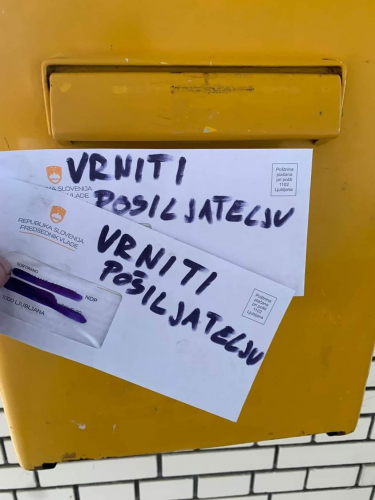 VRNITI
POSILJATELJU
A SLOVENIJA
VLADE
Poštnina
plačana
pri pošti
1102
Ljubljana
REPUBLIKA SLOVENIJA
PREDSEDNIK VLADE
VRNITI
POŠILJATELJU
NDP
1000 LJUBLJANA
Poštnina
plačana
pri pošti
1102
Ljubljana